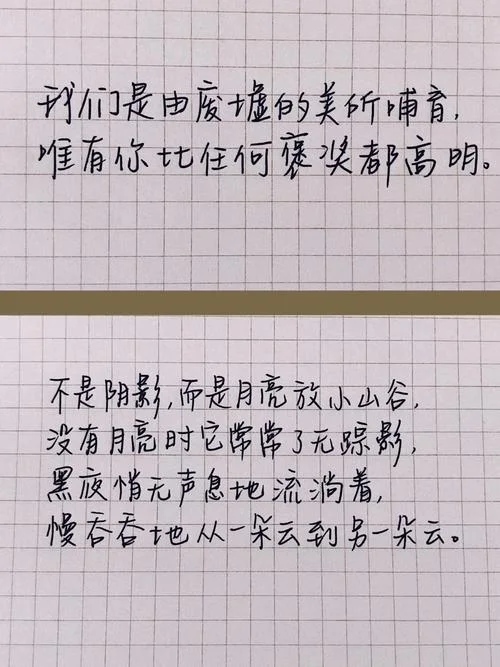 我们是由废墟的美所哺育,
唯有你比任何褒奖都高明。
不是阴影,而是月亮放小山谷,
没有月亮时它常常了无踪影,
黑夜悄无声息地流淌着,
慢吞吞地从一朵云到另一朵云。